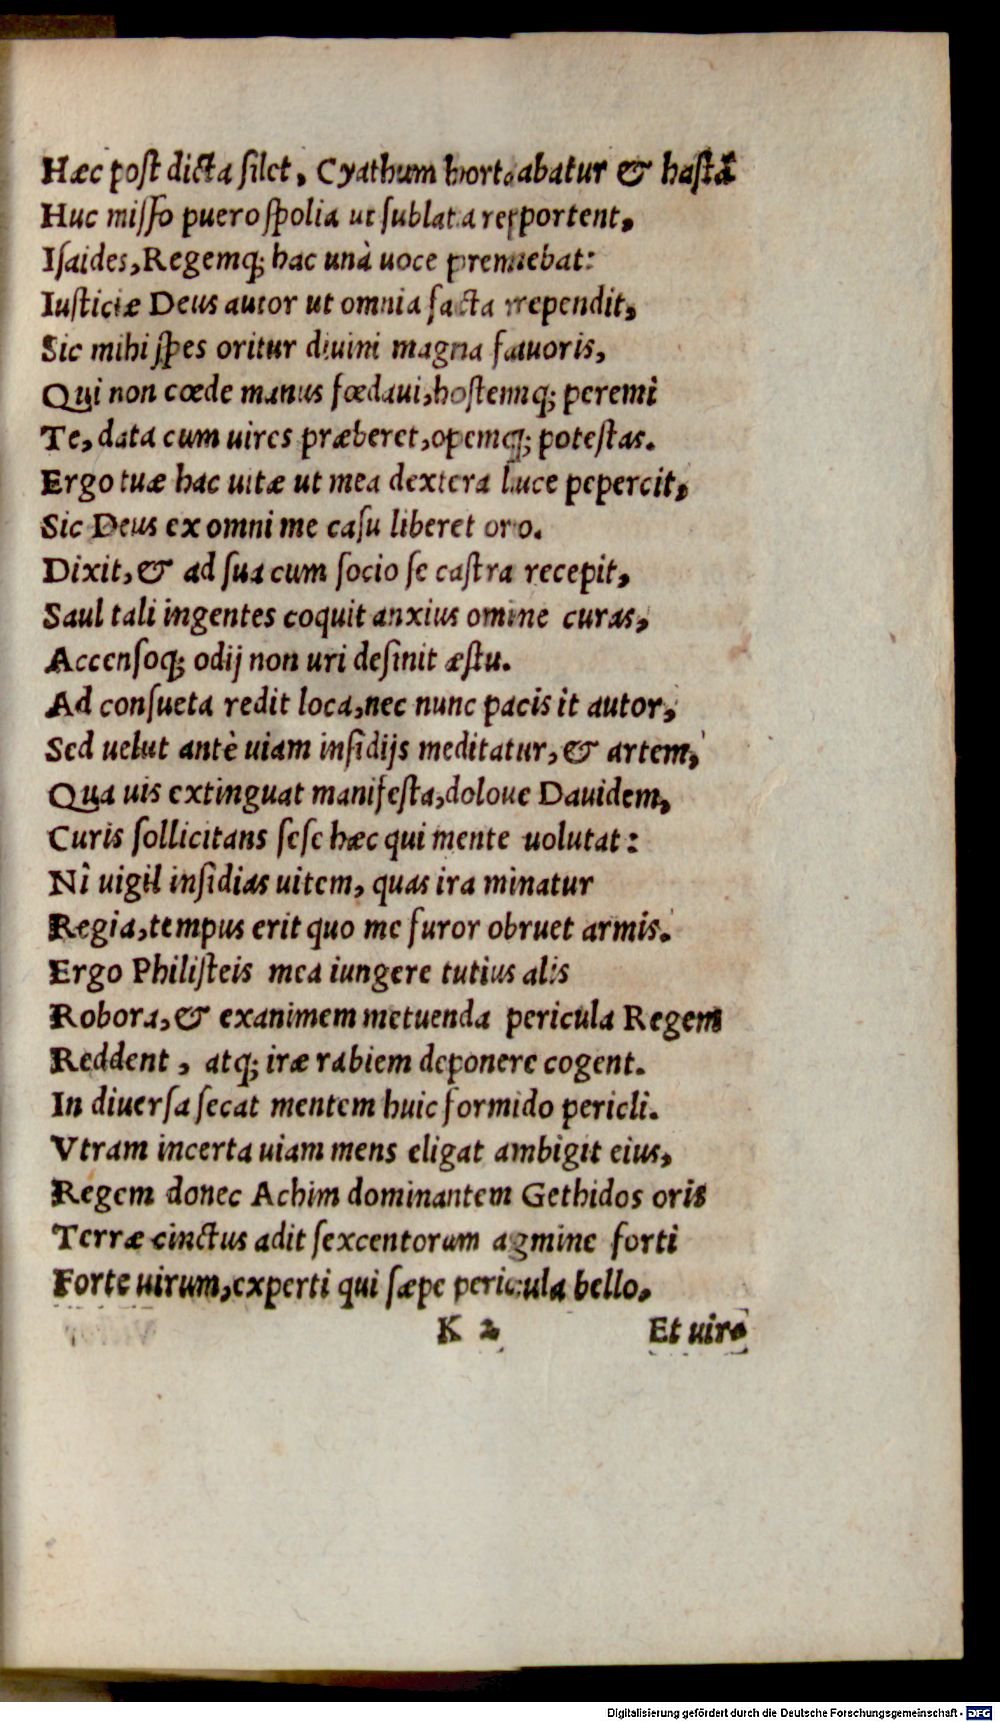 Hæc post dicta silet, Cyathum hortabatur & hastã
Huc misso puero spolia ut sublata reportent,
Isaides, Regemq; hac unà uoce premebat:
Iusticiæ Deus autor ut omnia facta rependit,
Sic mihi spes oritur diuini magna fauoris,
Qui non cœde manus fœdaui, hostemq; peremi
Te, data cum uires præberet, opemq; potestas.
Ergo tuæ hac uitæ ut mea dextera luce pepercit,
Sic Deus ex omni me casu liberet oro.
Dixit, & ad sua cum socio se castra recepit,
Saul tali ingentes coquit anxius omine curas,
Accensoq; odij non uri desinit æstu.
Ad consueta redit loca, nec nunc pacis it autor,
Sed uelut antè uiam insidijs meditatur, & artem,
Qua uis extinguat manifesta, doloue Dauidem,
Curis sollicitans sese hæc qui mente uolutat:
Nî uigil insidias uitem, quas ira minatur
Regia, tempus erit quo me furor obruet armis.
Ergo Philisteis mea iungere tutius alis
Robora, & exanimem metuenda pericula Regem
Reddent, atq; iræ rabiem deponere cogent.
In diuersa secat mentem huic formido pericli.
Vtram incerta uiam mens eligat ambigit eius,
Regem donec Achim dominantem Gethidos oris
Terræ cinctus adit sexcentorum agmine forti
Forte uirum, experti qui sæpe pericula bello,
K 2 Et uiro
Digitalisierung gefördert durch die Deutsche Forschungsgemeinschaft - DFG